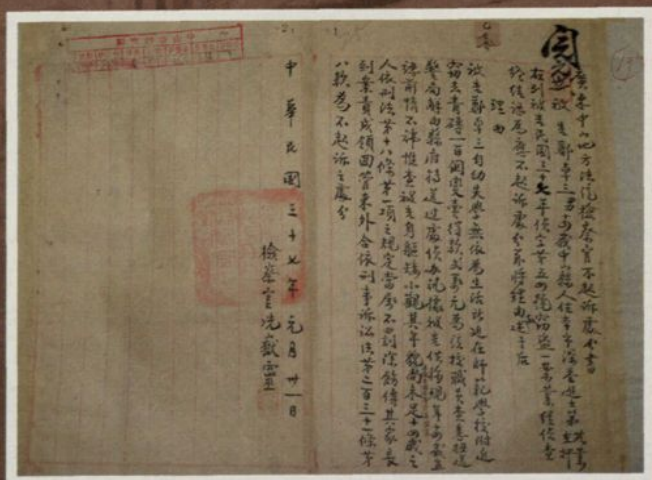 廣東中山地方法院檢察官不起訴處分書
被告鄭卓三男 歲中山縣人住
右列被告民國三十七年偵字第五四號竊盜一案業經偵查
終結認為應不起訴處分茲將經由述于后
理由
被告鄭卓三自幼失學無依為生活所迫在師範學校附近
竊去青磚一百個變賣得款 萬元為該校職員查悉扭送
警局解由縣府轉送過處偵 據被告供稱現年 歲並
認前情不諱惟查被告身軀矮小觀其年貌尚未足十四歲之
人依刑法第十八條第一項之規定當應不罰除飭傳其家長
到案責成領回管束外合依刑事訴訟法第二百三十一條第
八款為不起訴之處分
中華民國三十七年元月廿一日
檢察官冼嶽靈